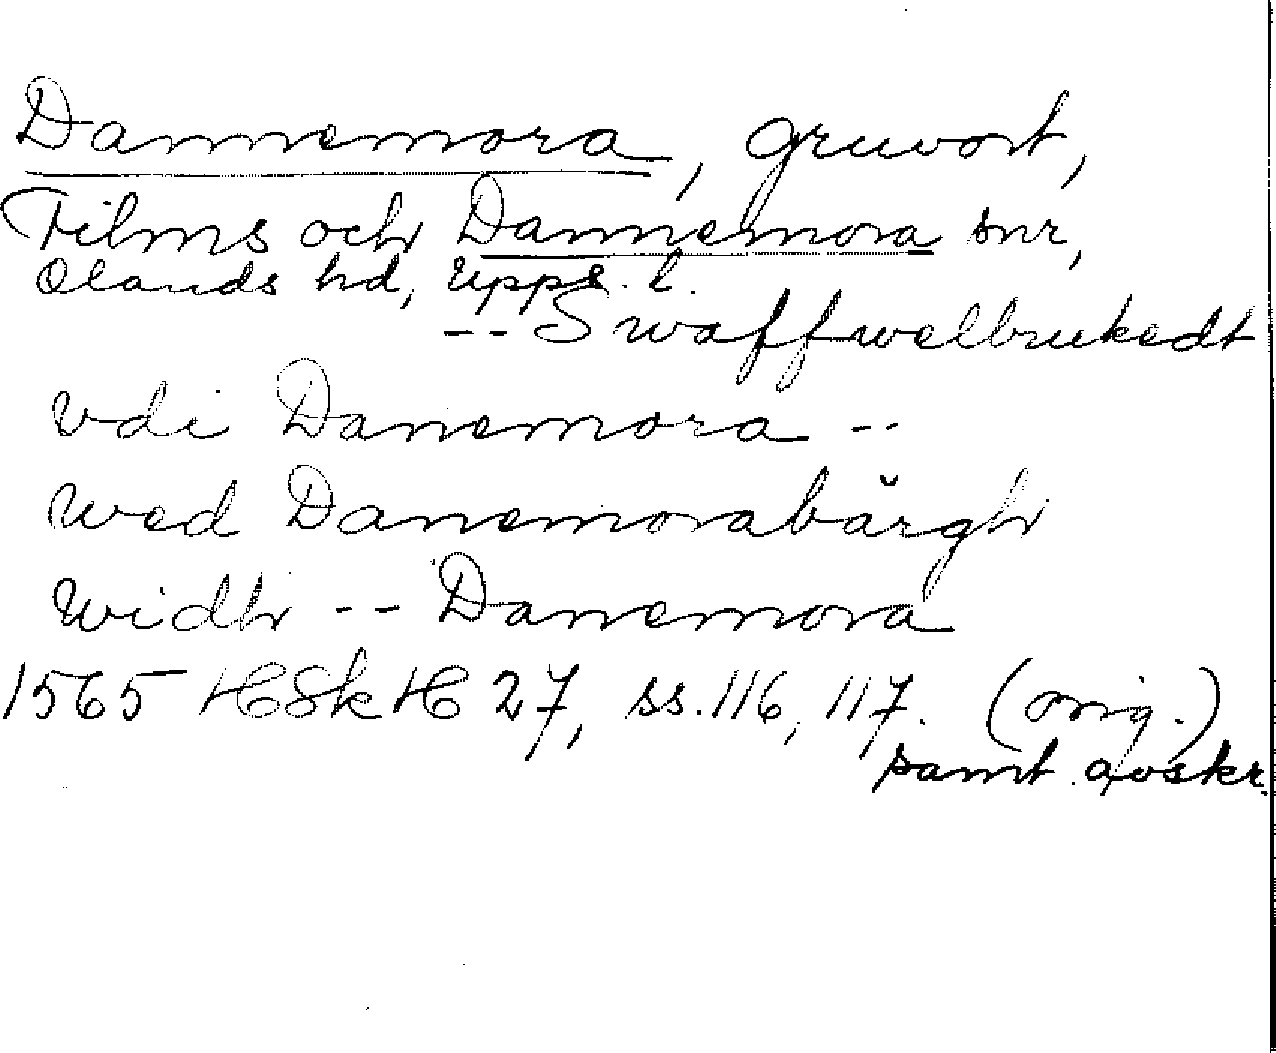 Dannemora, gruvort,
Films och Dannemora snr,
Olands hd, Upps. l.
-- Swaffwelbrukedt
vdi Danemora --
wed Danemorabärgh
widh -- Danemora
1565 HSkH 27, ss. 116, 117. (orig.)
samt avskr.